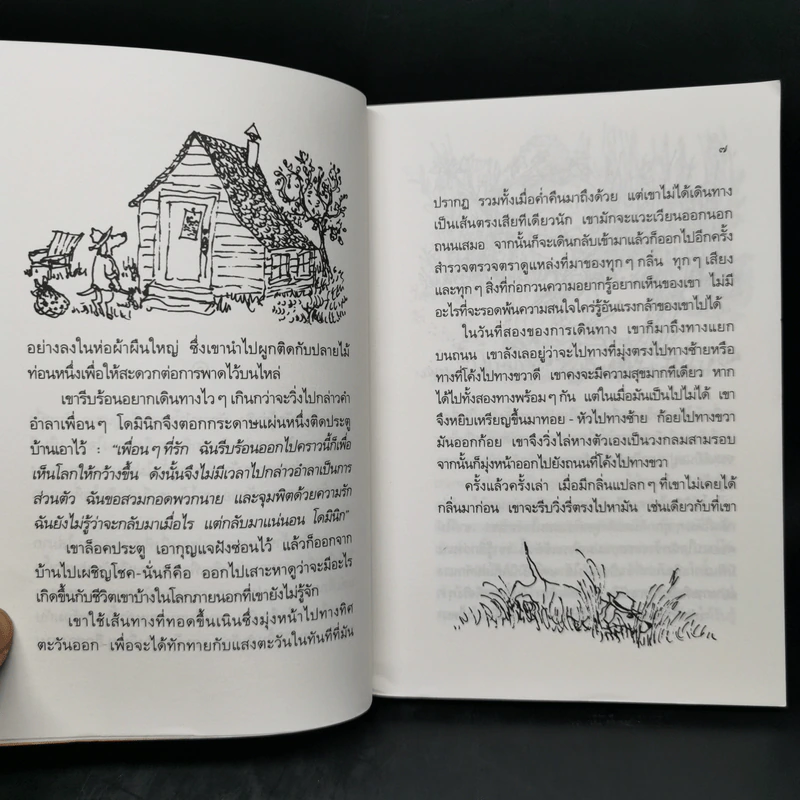 อย่างลงในห่อผ้าผืนใหญ่ ซึ่งเขานำไปผูกติดกับปลายไม้
ท่อนหนึ่งเพื่อให้สะดวกต่อการพาดไว้บนไหล่
เขารีบร้อนอยากเดินทางไวๆ เกินกว่าจะวิ่งไปกล่าวคำ
อำลาเพื่อนๆ โดมินิกจึงตอกกระดาษแผ่นหนึ่งติดประตู
บ้านเอาไว้ : "เพื่อนๆ ที่รัก ฉันรีบร้อนออกไปคราวนี้ก็เพื่อ
เห็นโลกให้กว้างขึ้น ดังนั้นจึงไม่มีเวลาไปกล่าวอำลาเป็นการ
ส่วนตัว ฉันขอสวมกอดพวกนาย และจุมพิตด้วยความรัก
ฉันยังไม่รู้ว่าจะกลับมาเมื่อไร แต่กลับมาแน่นอน โดมินิก"
เขาล็อคประตู เอากุญแจฝังซ่อนไว้ แล้วก็ออกจาก
บ้านไปเผชิญโชค-นั่นก็คือ ออกไปเสาะหาดูว่าจะมีอะไร
เกิดขึ้นกับชีวิตเขาบ้างในโลกภายนอกที่เขายังไม่รู้จัก
เขาใช้เส้นทางที่ทอดขึ้นเนินซึ่งมุ่งหน้าไปทางทิศ
ตะวันออก เพื่อจะได้ทักทายกับแสงตะวันในทันทีที่มัน
๗
ปรากฏ รวมทั้งเมื่อค่ำคืนมาถึงด้วย แต่เขาไม่ได้เดินทาง
เป็นเส้นตรงเสียทีเดียวนัก เขามักจะแวะเวียนออกนอก
ถนนเสมอ จากนั้นก็จะเดินกลับเข้ามาแล้วก็ออกไปอีกครั้ง
สำรวจตรวจตราดูแหล่งที่มาของทุกๆ กลิ่น ทุกๆ เสียง
และทุกๆ สิ่งที่ก่อกวนความอยากรู้อยากเห็นของเขา ไม่มี
อะไรที่จะรอดพ้นความสนใจใคร่รู้อันแรงกล้าของเขาไปได้
ในวันที่สองของการเดินทาง เขาก็มาถึงทางแยก
บนถนน เขาลังเลอยู่ว่าจะไปทางที่มุ่งตรงไปทางซ้ายหรือ
ทางที่โค้งไปทางขวาดี เขาคงจะมีความสุขมากทีเดียว หาก
ได้ไปทั้งสองทางพร้อมๆ กัน แต่ในเมื่อมันเป็นไปไม่ได้ เขา
จึงหยิบเหรียญขึ้นมาทอย - หัวไปทางซ้าย ก้อยไปทางขวา
มันออกก้อย เขาจึงวิ่งไล่หางตัวเองเป็นวงกลมสามรอบ
จากนั้นก็มุ่งหน้าออกไปยังถนนที่โค้งไปทางขวา
ครั้งแล้วครั้งเล่า เมื่อมีกลิ่นแปลกๆ ที่เขาไม่เคยได้
กลิ่นมาก่อน เขาจะรีบวิ่งรี่ตรงไปหามัน เช่นเดียวกับที่เขา